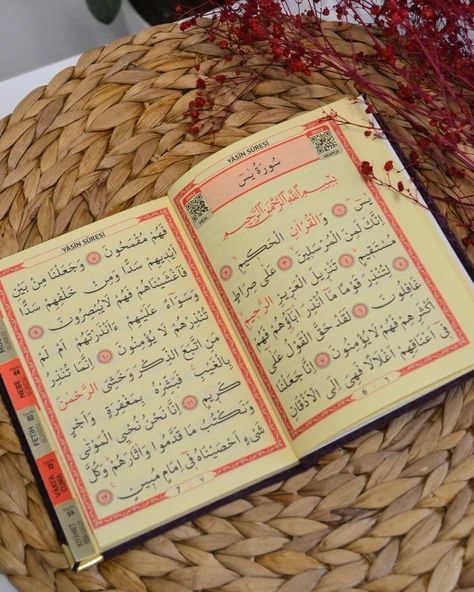 YÂSÎN SÛRESİ
سُورَةُ يٰسٓ
ARAPÇA
MEAL
بِسْمِ اللّٰهِ الرَّحْمٰنِ الرَّحِيمِ
يٰسٓ ﴿١﴾ وَالْقُرْاٰنِ الْحَكِيمِ ﴿٢﴾
اِنَّكَ لَمِنَ الْمُرْسَلِينَ ﴿٣﴾ عَلٰى صِرَاطٍ
مُسْتَقِيمٍ ﴿٤﴾ تَنْزِيلَ الْعَزِيزِ الرَّحِيمِ
﴿٥﴾ لِتُنْذِرَ قَوْمًا مَٓا اُنْذِرَ اٰبَٓاؤُهُمْ فَهُمْ
غَافِلُونَ ﴿٦﴾ لَقَدْ حَقَّ الْقَوْلُ عَلٰٓى
اَكْثَرِهِمْ فَهُمْ لَا يُؤْمِنُونَ ﴿٧﴾ اِنَّا جَعَلْنَا
فِٓي اَعْنَاقِهِمْ اَغْلَالًا فَهِيَ اِلَى الْاَذْقَانِ
6 ٦
YÂSÎN SÛRESİ
فَهُمْ مُقْمَحُونَ ﴿٨﴾ وَجَعَلْنَا مِنْ بَيْنِ
اَيْدِيهِمْ سَدًّا وَمِنْ خَلْفِهِمْ سَدًّا
فَاَغْشَيْنَاهُمْ فَهُمْ لَا يُبْصِرُونَ ﴿٩﴾
وَسَوَٓاءٌ عَلَيْهِمْ ءَاَنْذَرْتَهُمْ اَمْ لَمْ
تُنْذِرْهُمْ لَا يُؤْمِنُونَ ﴿١٠﴾ اِنَّمَا تُنْذِرُ
مَنِ اتَّبَعَ الذِّكْرَ وَخَشِيَ الرَّحْمٰنَ
بِالْغَيْبِ فَبَشِّرْهُ بِمَغْفِرَةٍ وَاَجْرٍ
كَرِيمٍ ﴿١١﴾ اِنَّا نَحْنُ نُحْيِي الْمَوْتٰى
وَنَكْتُبُ مَا قَدَّمُوا وَاٰثَارَهُمْ وَكُلَّ
شَيْءٍ اَحْصَيْنَاهُ فِٓي اِمَامٍ مُبِينٍ ﴿١٢﴾
7 ٧
NEBE
FETİH
VÂKIA
CUMA
KIYAMET